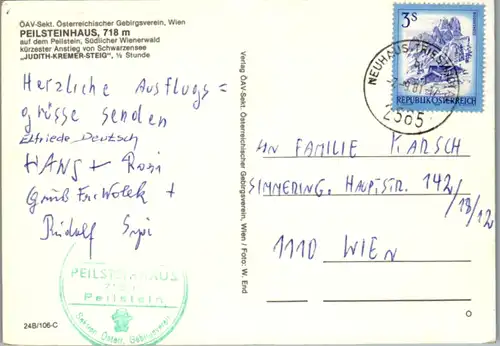 ÖAV-Sekt. Österreichischer Gebirgsverein, Wien
PEILSTEINHAUS, 718 m
auf dem Peilstein, Südlicher Wienerwald
kürzester Anstieg von Schwarzensee
„JUDITH-KREMER-STEIG“, ½ Stunde
Herzliche Ausflugs=
grüsse senden
Elfriede Deutsch
HANS + Rosi
Gruß Fr. +
Rudolf
PEILSTEINHAUS
Peilstein
Sektion Österr. Gebirgsverein
24B/106-C
Verlag ÖAV-Sekt. Österreichischer Gebirgsverein, Wien / Foto: W. End
3S
REPUBLIK ÖSTERREICH
NEUHAUS, TRIESTING
2565
AN FAMILIE KARSCH
SIMMERING, HAUPTSTR. 142/18/12
1110 WIEN